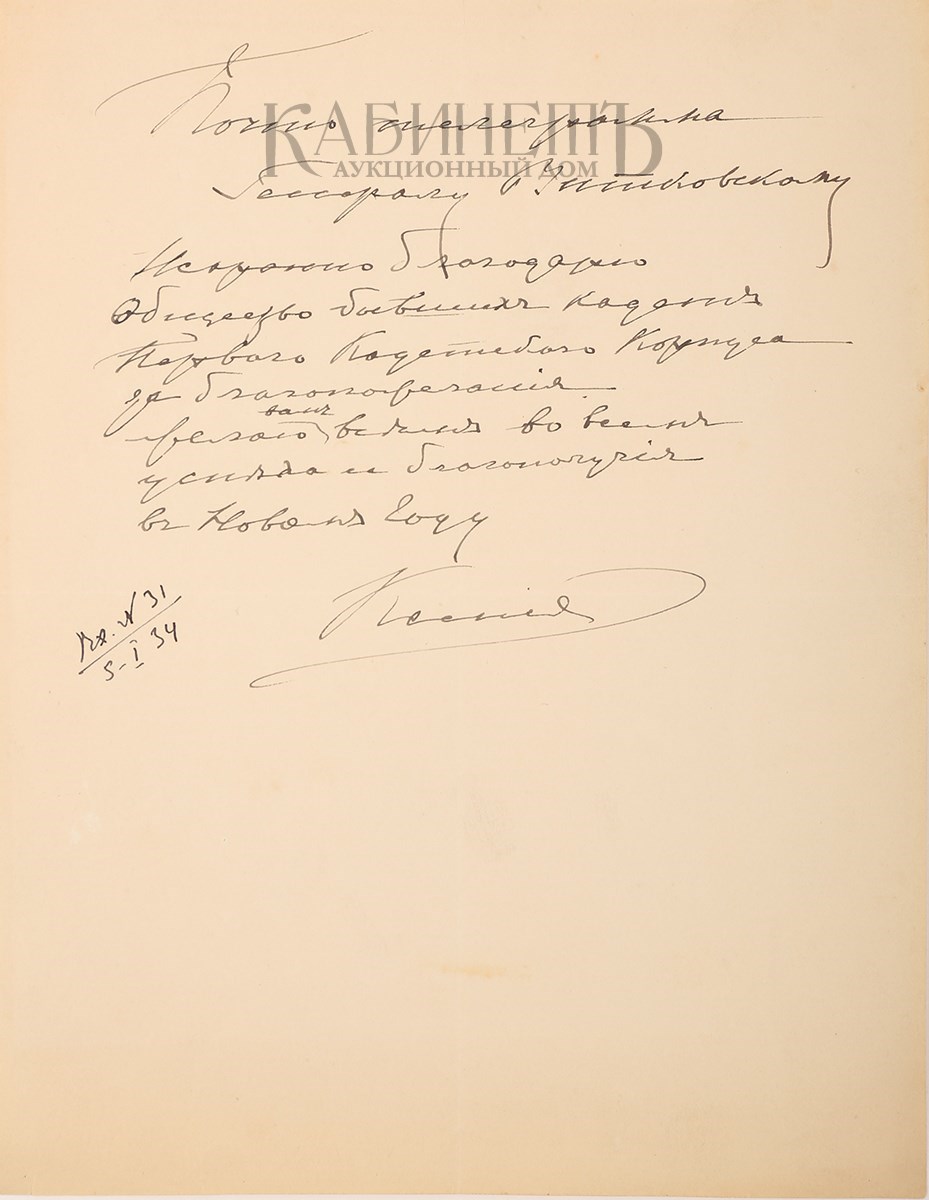 КАБИНЕТЪ
АУКЦИОННЫЙ ДОМ
Почто телеграмма
Генералу
Искренно благодарю
Общество бывшихъ кадетъ
Перваго Кадетскаго Корпуса
за благопожеланія
вамъ
желаю всѣмъ во всемъ
успѣха и благополучія
въ Новомъ Году
Ксенія
Вх. N 31
5-I 34